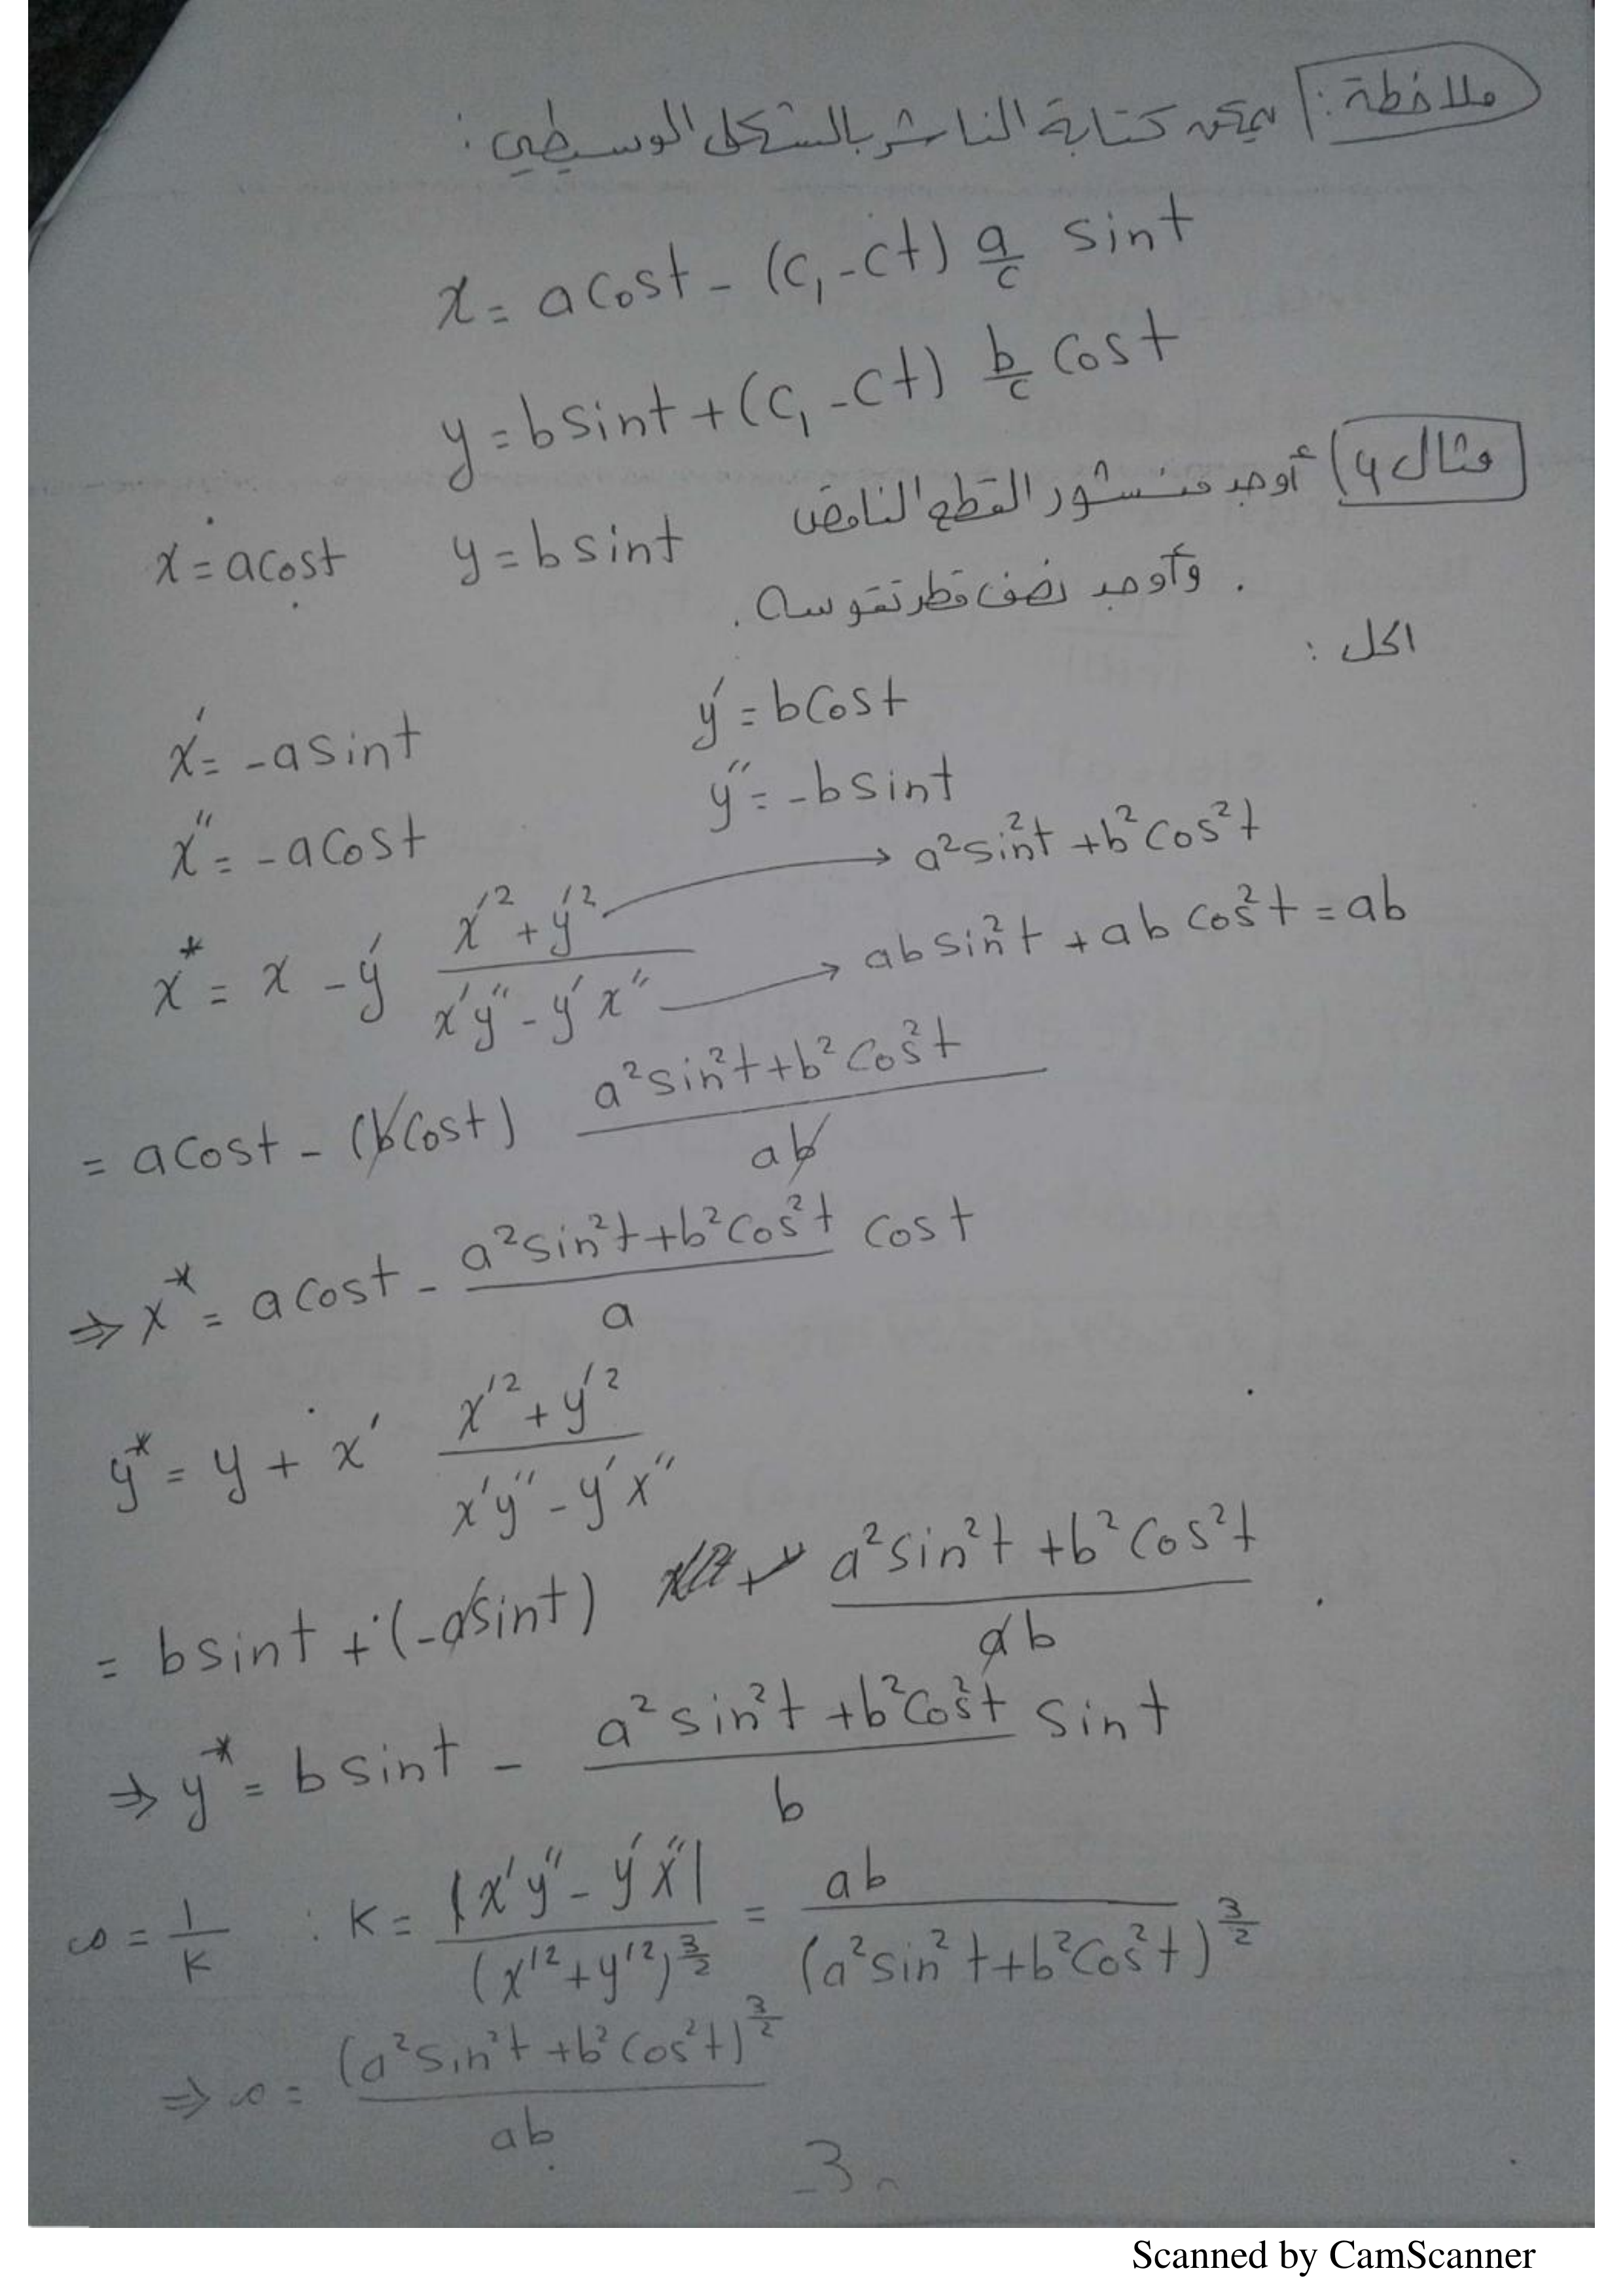 ملاحظة: يمكن كتابة الناشر بالشكل الوسيطي:
x = a cost - (c₁ - ct) a/c sint
y = b sint + (c₁ - ct) b/c cost
مثال 4) أوجد منشور القطع الناقص x = a cost y = b sint
وأوجد نصف قطر تقوسه.
الحل:
x' = -a sint y' = b cost
x'' = -a cost y'' = -b sint
x* = x - y' (x'² + y'²)/(x'y'' - y'x'') → a² sin²t + b² cos²t → ab sin²t + ab cos²t = ab
= a cost - (b cost) (a² sin²t + b² cos²t)/ab
⇒ x* = a cost - (a² sin²t + b² cos²t)/a cost
y* = y + x' (x'² + y'²)/(x'y'' - y'x'')
= b sint + (-a sint) (a² sin²t + b² cos²t)/ab
⇒ y* = b sint - (a² sin²t + b² cos²t)/b sint
= 1/K : K = |x'y'' - y'x''|/(x'² + y'²)^(3/2) = ab/(a² sin²t + b² cos²t)^(3/2)
⇒ = (a² sin²t + b² cos²t)^(3/2)/ab
3
Scanned by CamScanner